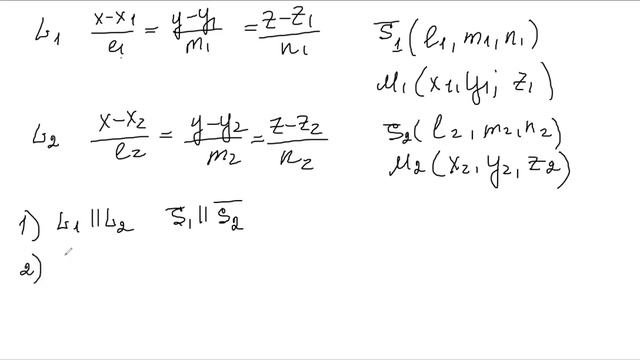 L₁ (x-x₁)/l₁ = (y-y₁)/m₁ = (z-z₁)/n₁ S̄₁(l₁, m₁, n₁)
M₁(x₁, y₁; z₁)
L₂ (x-x₂)/l₂ = (y-y₂)/m₂ = (z-z₂)/n₂ S̄₂(l₂, m₂, n₂)
M₂(x₂, y₂, z₂)
1) L₁ || L₂ S̄₁ || S̄₂
2)